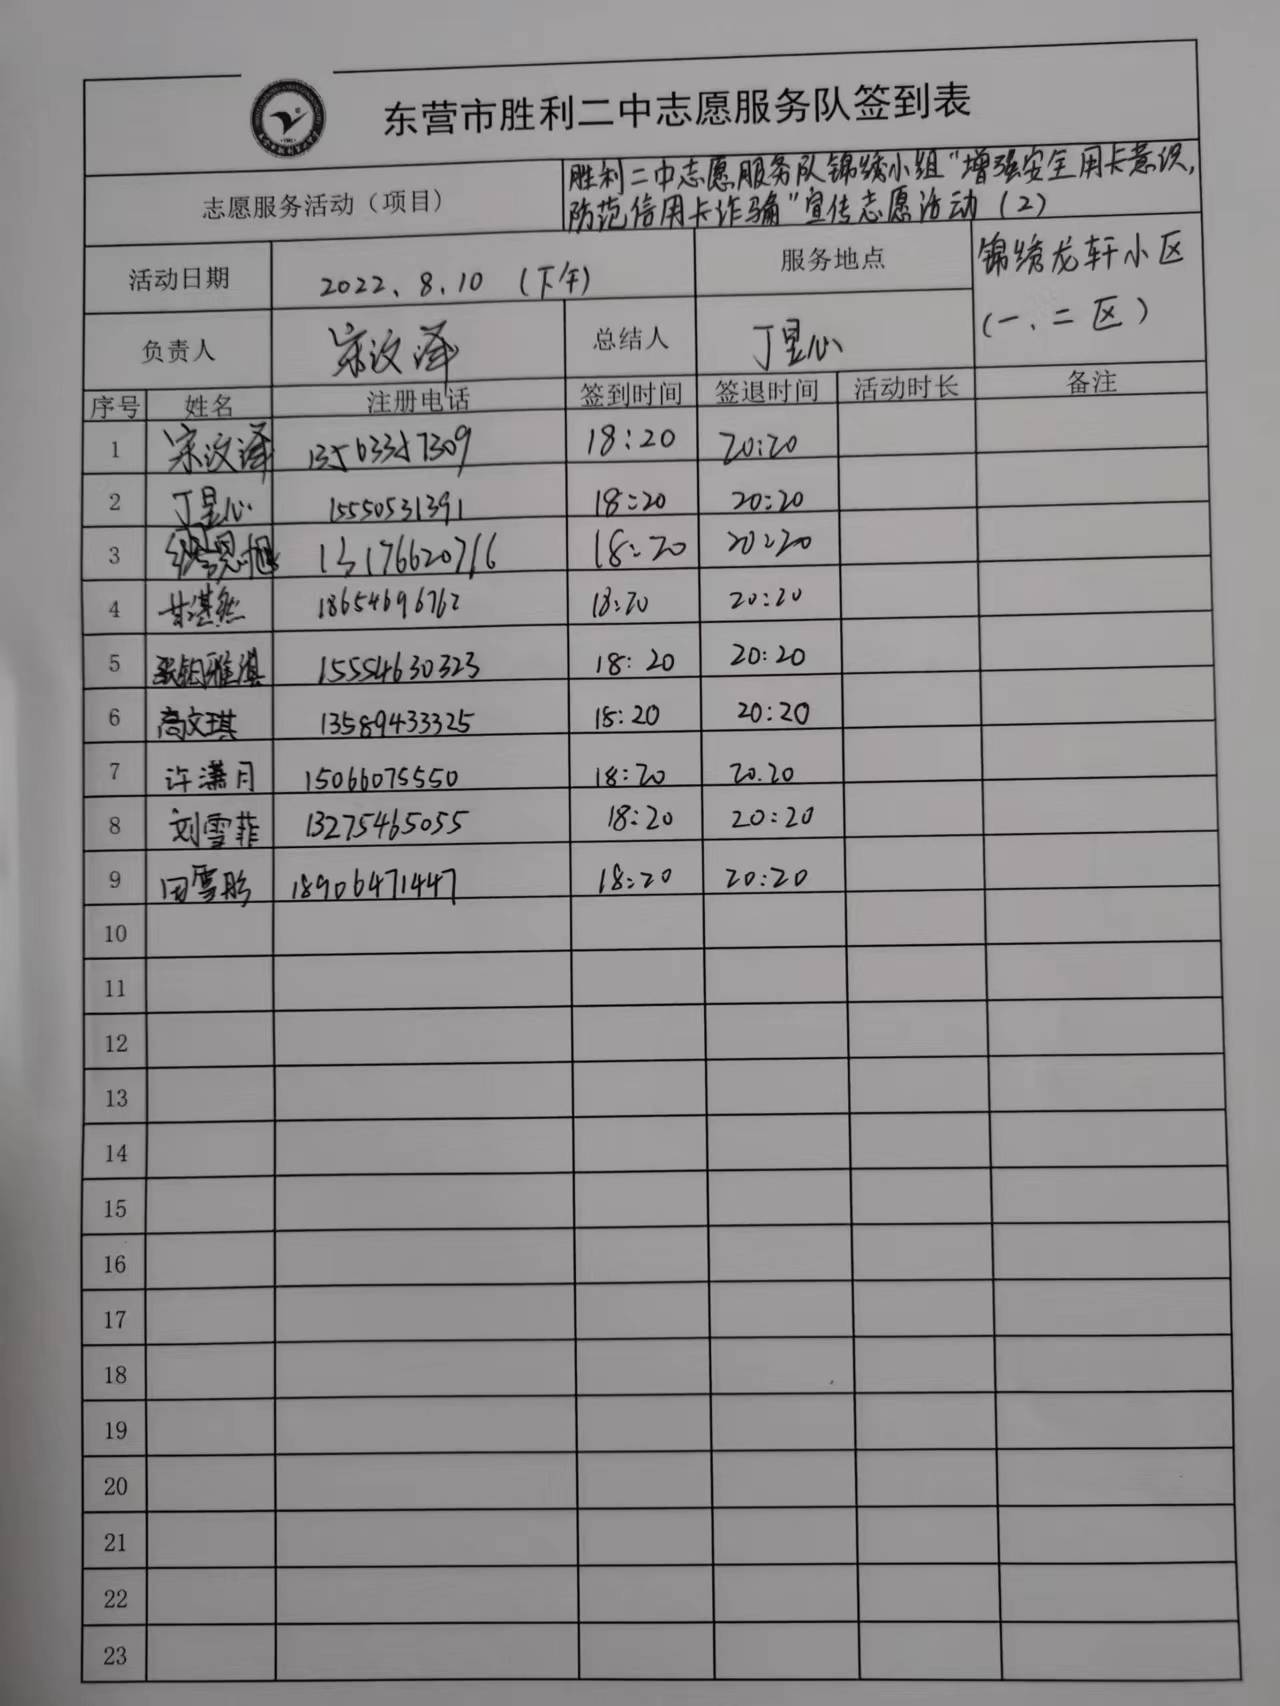 东营市胜利二中志愿服务队签到表
志愿服务活动（项目） 胜利二中志愿服务队锦绣小组"增强安全用卡意识，
防范信用卡诈骗"宣传志愿活动（2）
活动日期 2022、8、10 （下午） 服务地点 锦绣龙轩小区
（一、二区）
负责人 宋汶泽 总结人 丁昱心
序号 姓名 注册电话 签到时间 签退时间 活动时长 备注
1 宋汶泽 13563357309 18:20 20:20
2 丁昱心 15550531391 18:20 20:20
3 13176620716 18:20 20:20
4 甘湛然 18654696762 18:20 20:20
5 15554630323 18:20 20:20
6 高文琪 13589433325 18:20 20:20
7 许潇月 15066075550 18:20 20.20
8 刘雪菲 13275465055 18:20 20:20
9 田雪彤 18906471447 18:20 20:20
10
11
12
13
14
15
16
17
18
19
20
21
22
23